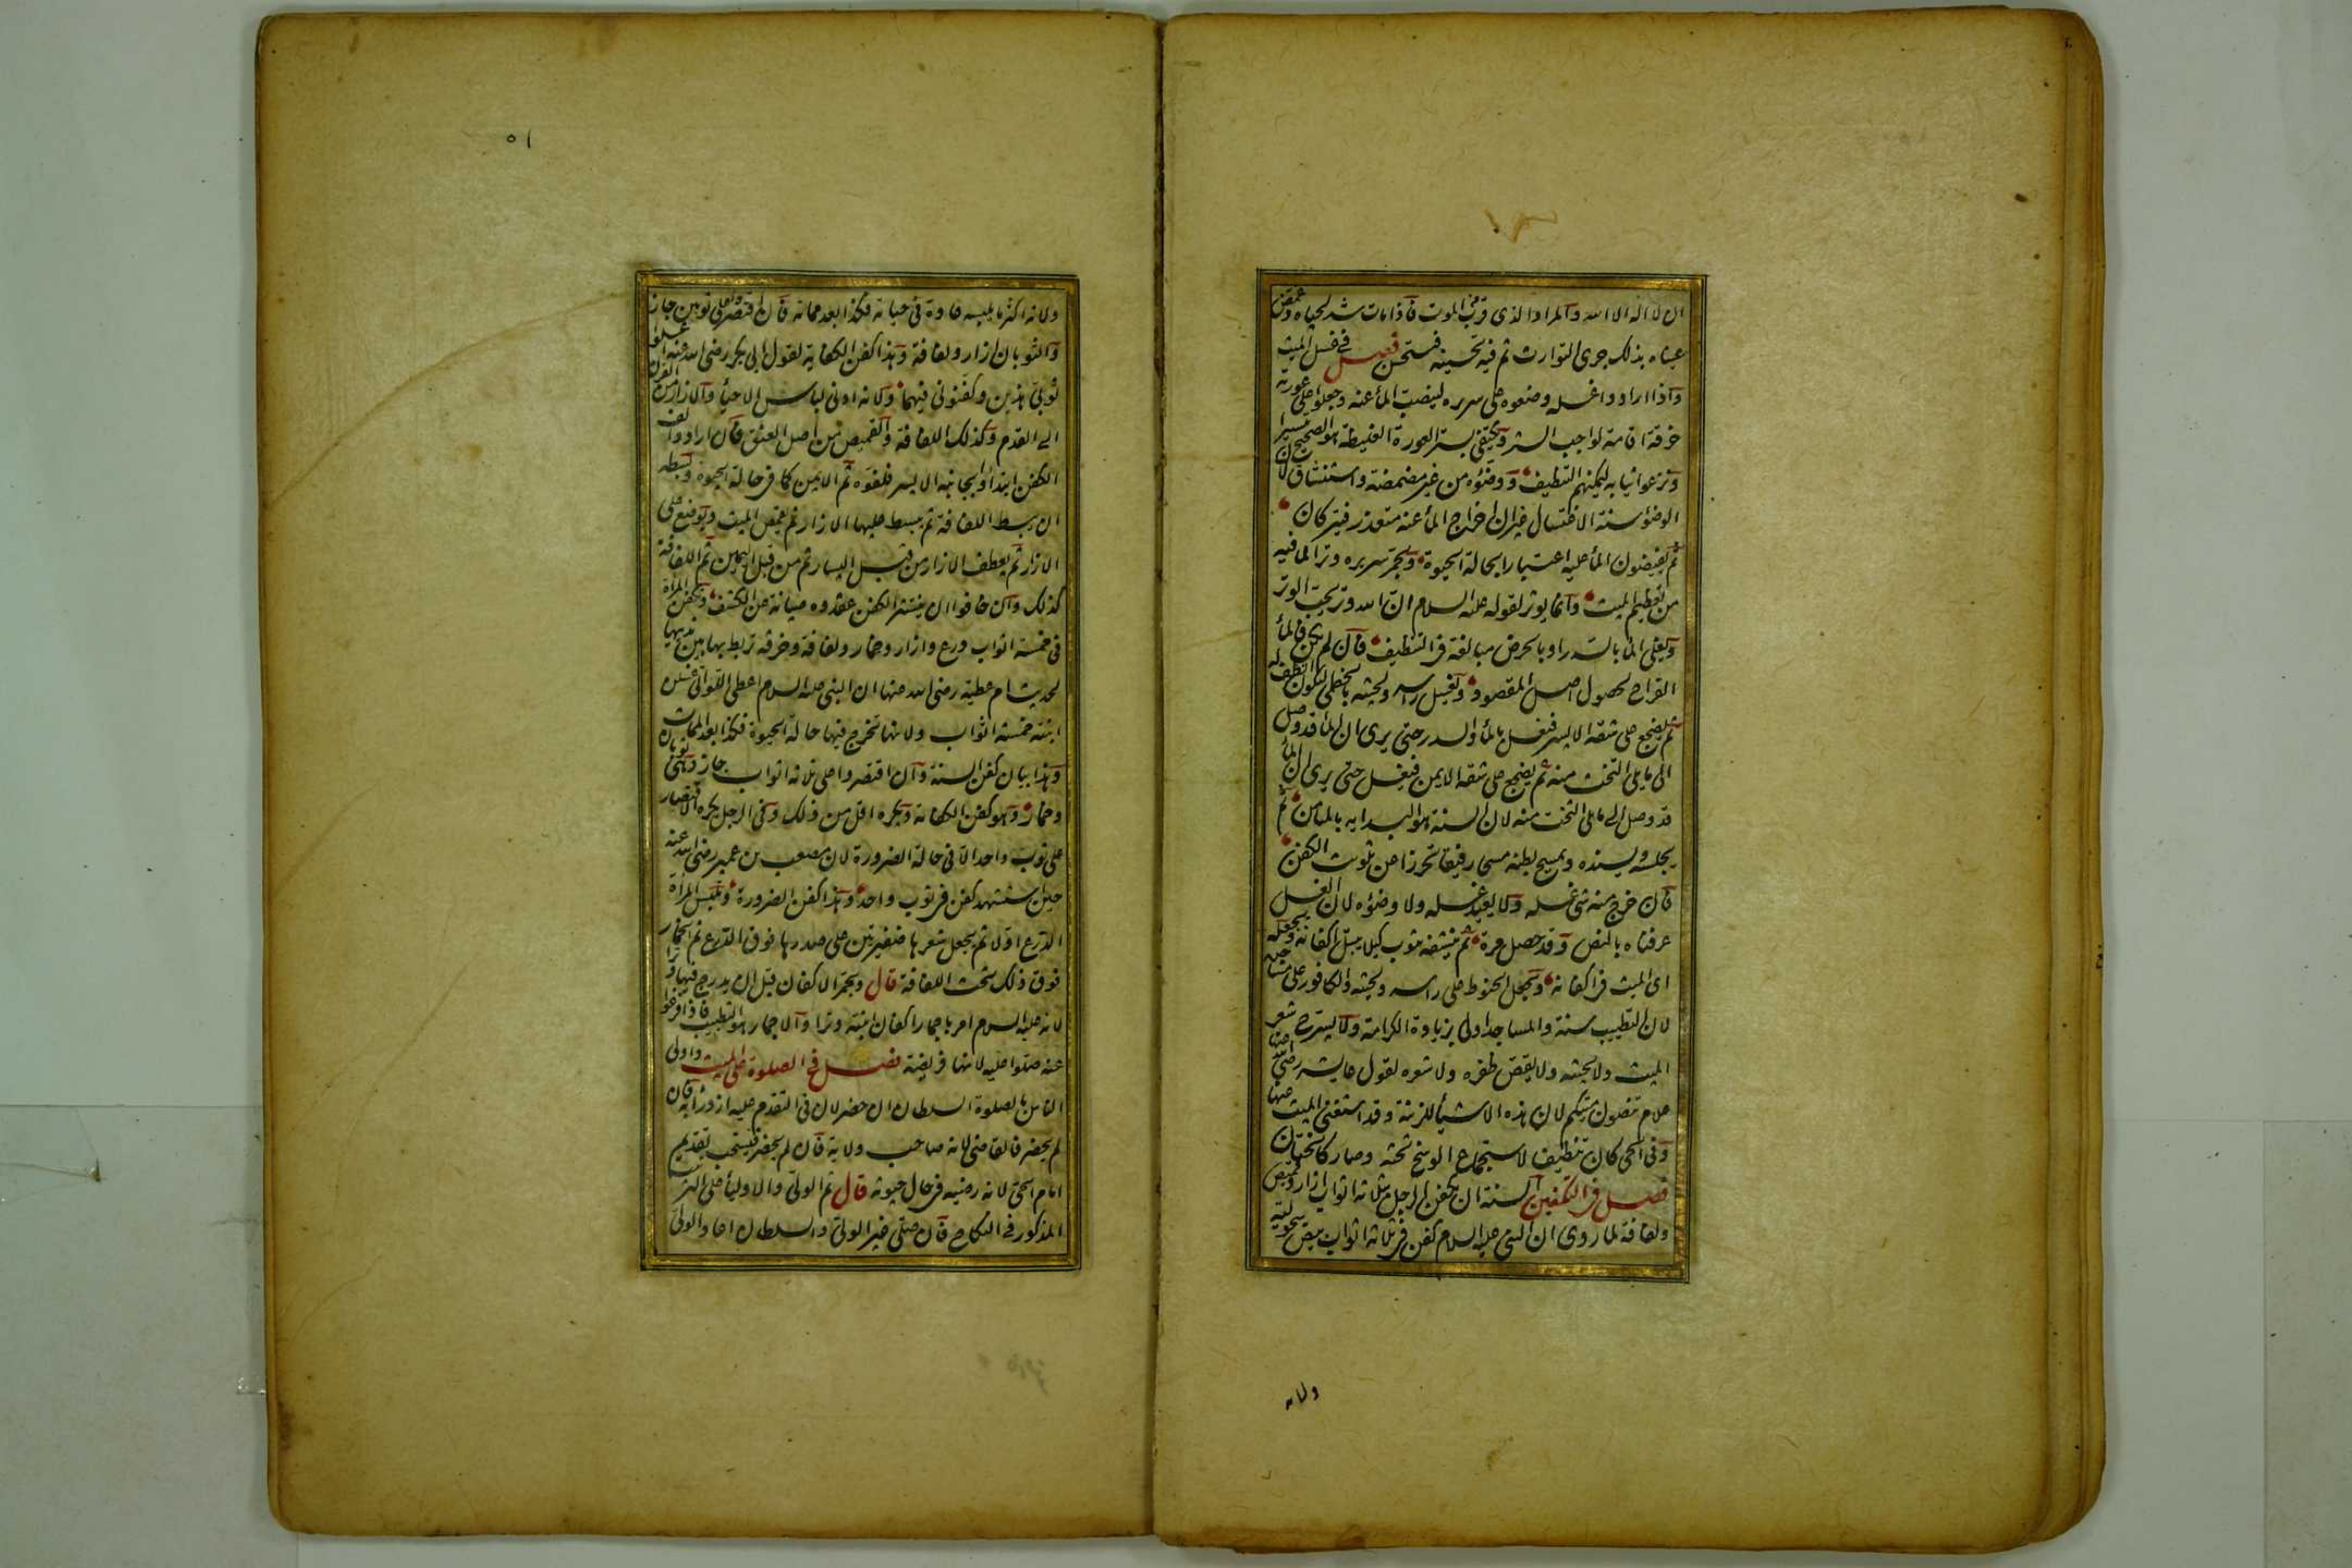 ان لا اله الا الله والمراد الذى قرب من الموت فاذا مات شد لحياه وغمض
عيناه بذلك جرى التوارث ثم فيه تحسينه فيستحسن فصل فى غسل الميت
واذا ارادوا غسله وضعوه على سريره لينصب الماء عنه وجعلوا على عورته
خرقة اقامة لواجب الستر ويكتفى بستر العورة الغليظة هو الصحيح تيسيرا
ونزعوا ثيابه ليمكنهم التنظيف ووضؤه من غير مضمضة واستنشاق لان
الوضؤ سنة الاغتسال غير ان اخراج الماء عنه متعذر فيتركان
ثم يفيضون الماء عليه اعتبارا بحالة الحيوة ويجمر سريره وترا لما فيه
من تعظيم الميت وانما يوتر لقوله عليه السلام ان الله وتر يحب الوتر
ويغلى الماء بالسدر او بالحرض مبالغة فى التنظيف فان لم يكن فالماء
القراح لحصول اصل المقصود ويغسل راسه ولحيته بالخطمى ليكون انظف له
ثم يضجع على شقه الايسر فيغسل بالماء والسدر حتى يرى ان الماء قد وصل
الى ما يلى التخت منه ثم يضجع على شقه الايمن فيغسل حتى يرى ان الماء
قد وصل الى ما يلى التخت منه لان السنة هو البداية بالميامن ثم
يجلسه ويسنده ويمسح بطنه مسحا رفيقا تحرزا عن تلويث الكفن
فان خرج منه شئ غسله ولا يعيد غسله ولا وضوءه لان الغسل
عرفناه بالنص وقد حصل مرة ثم ينشفه بثوب كيلا يبتل اكفانه ويجعله
اى الميت فى اكفانه ويجعل الحنوط على راسه ولحيته والكافور على مساجده
لان التطيب سنة والمساجد اولى بزيادة الكرامة ولا يسرح شعر
الميت ولا لحيته ولا يقص ظفره ولا شعره لقول عايشه رضى الله عنها
علام تنصون ميتكم لان هذه الاشياء للزينة وقد استغنى الميت عنها
وفى الحى كان تنظيفا لاستجماع الوسخ تحته وصار كالختان
فصل فى التكفين السنة ان يكفن الرجل بثلاثة اثواب ازار وقميص
ولفافة لما روى ان النبى عليه السلام كفن فى ثلاثة اثواب بيض سحولية
ولانه
٥١
ولانه اكثر ما يلبسه عادة فى حياته فكذا بعد مماته فان اقتصروا على ثوبين جاز
والثوبان ازار ولفافة وهذا كفن الكفاية لقول ابى بكر رضى الله عنه اغسلوا
ثوبى هذين وكفنونى فيهما ولانه ادنى لباس الاحياء والازار من القرن
الى القدم وكذلك اللفافة والقميص من اصل العنق فان ارادوا لف
الكفن ابتدأوا بجانبه الايسر فلفوه ثم الايمن كما فى حالة الحيوة وبسطه
ان يبسط اللفافة ثم يبسط عليها الازار ثم يقمص الميت ويوضع على
الازار ثم يعطف الازار من قبل اليسار ثم من قبل اليمين ثم اللفافة
كذلك وان خافوا ان ينتشر الكفن عقدوه صيانة عن الكشف وتكفن المرأة
فى خمسة اثواب درع وازار وخمار ولفافة وخرقة تربط بها بين ثدييها
لحديث ام عطية رضى الله عنها ان النبى عليه السلام اعطى اللواتى غسلن
ابنته خمسة اثواب ولانها تخرج فيها حالة الحيوة فكذا بعد الممات
وهذا بيان كفن السنة وان اقتصروا على ثلاثة اثواب جاز وهى ثوبان
وخمار وهو كفن الكفاية ويكره اقل من ذلك وفى الرجل يكره الاقتصار
على ثوب واحد الا فى حالة الضرورة لان مصعب بن عمير رضى الله عنه
حين استشهد كفن فى ثوب واحد وهذا كفن الضرورة وتلبس المرأة
الدرع اولا ثم يجعل شعرها ضفيرتين على صدرها فوق الدرع ثم الخمار
فوق ذلك تحت اللفافة قال ويجمر الاكفان قبل ان يدرج فيها وترا
لانه عليه السلام امر باجمار اكفان ابنته وترا والاجمار هو التطييب فاذا فرغوا
عنه صلوا عليه لانها فريضة فصل فى الصلوة على الميت واولى
الناس بالصلوة السلطان ان حضر لان فى التقدم عليه ازدراء به فان
لم يحضر فالقاضى لانه صاحب ولاية فان لم يحضر فيستحب تقديم
امام الحى لانه رضيه فى حال حيوته قال ثم الولى والاولياء على الترتيب
المذكور فى النكاح فان صلى غير الولى والسلطان اعاد الولى